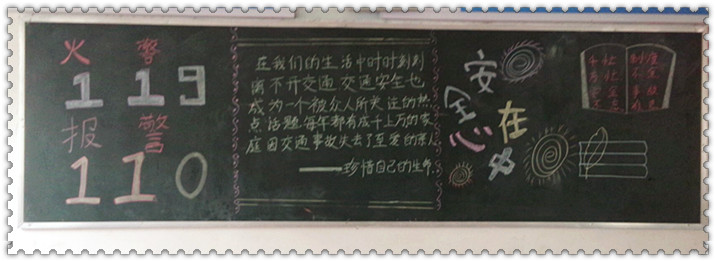 火警
119
报警
110
在我们的生活中时时刻刻
离不开交通,交通安全也
成为一个被众人所关注的热
点话题.每年都有成千上万的家
庭因交通事故失去了至爱的亲人
——珍惜自己的生命.
安全
在心